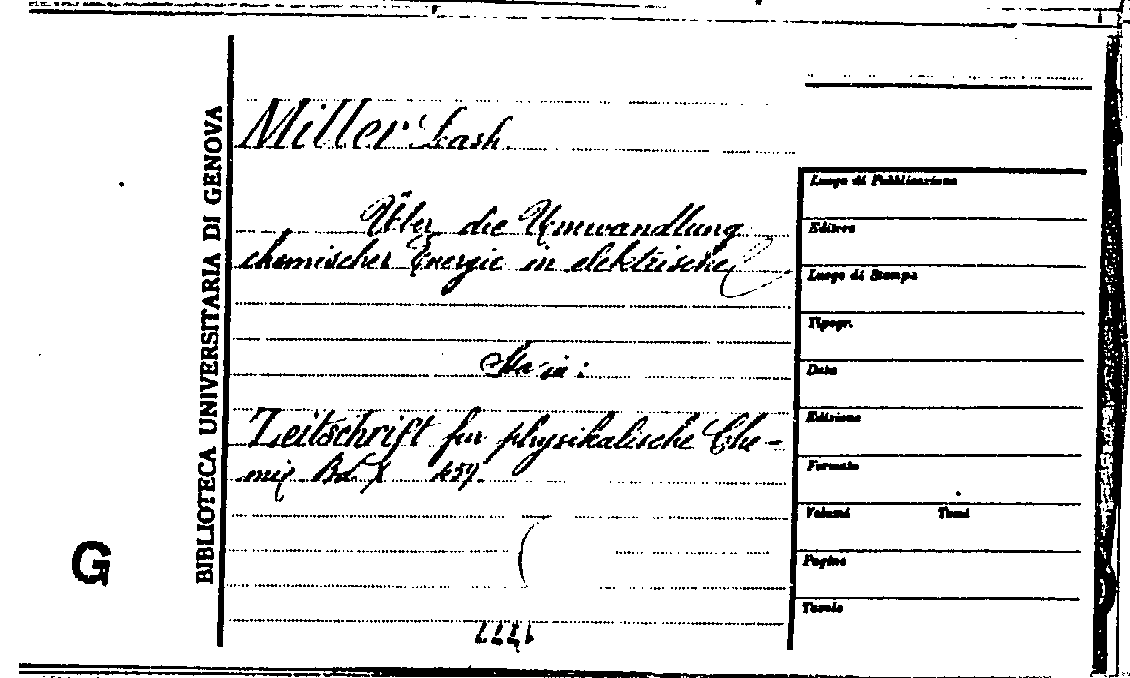 Miller Lash.
Über die Umwandlung
chemischer Energie in elektrische
Sta in:
Zeitschrift für physikalische Che-
mie Bd. X 459.
BIBLIOTECA UNIVERSITARIA DI GENOVA
G
Luogo di Pubblicazione
Editore
Luogo di Stampa
Tipogr.
Data
Edizione
Formato
Volumi Tomi
Pagine
Tavole